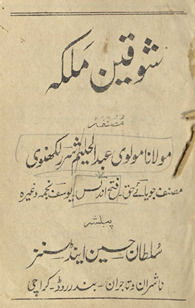 شوقین ملکہ
مصنفہ
مولانا مولوی عبدالحلیم شرر لکھنوی
مصنف جویائے حق۔ فتح اندلس یوسف نجمہ وغیرہ
پبلشر
سلطان حسین اینڈ سنز
ناشران و تاجران۔ بندر روڈ۔ کراچی